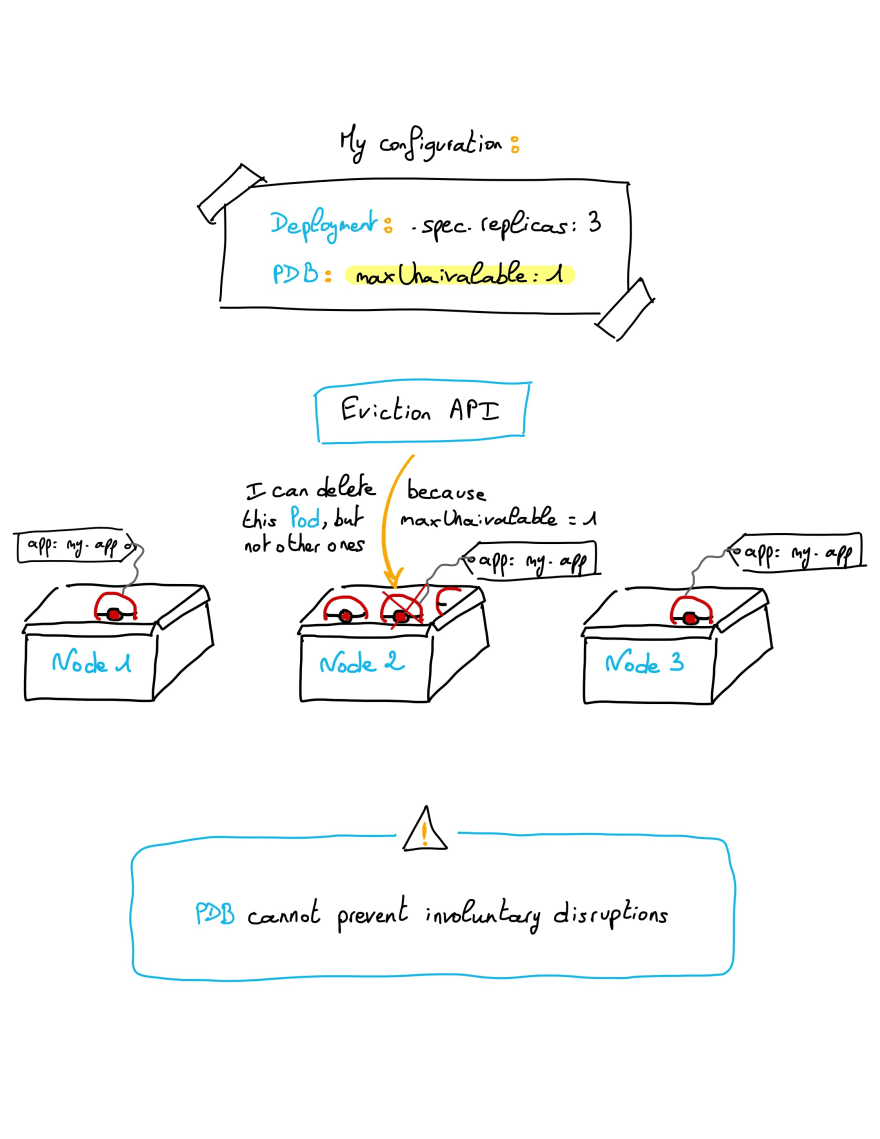 My configuration:
Deployment: .spec.replicas: 3
PDB: maxUnaivalable: 1
Eviction API
I can delete
this Pod, but
not other ones
because
maxUnaivalable = 1
app: my-app
app: my-app
app: my-app
Node 1
Node 2
Node 3
!
PDB cannot prevent involuntary disruptions